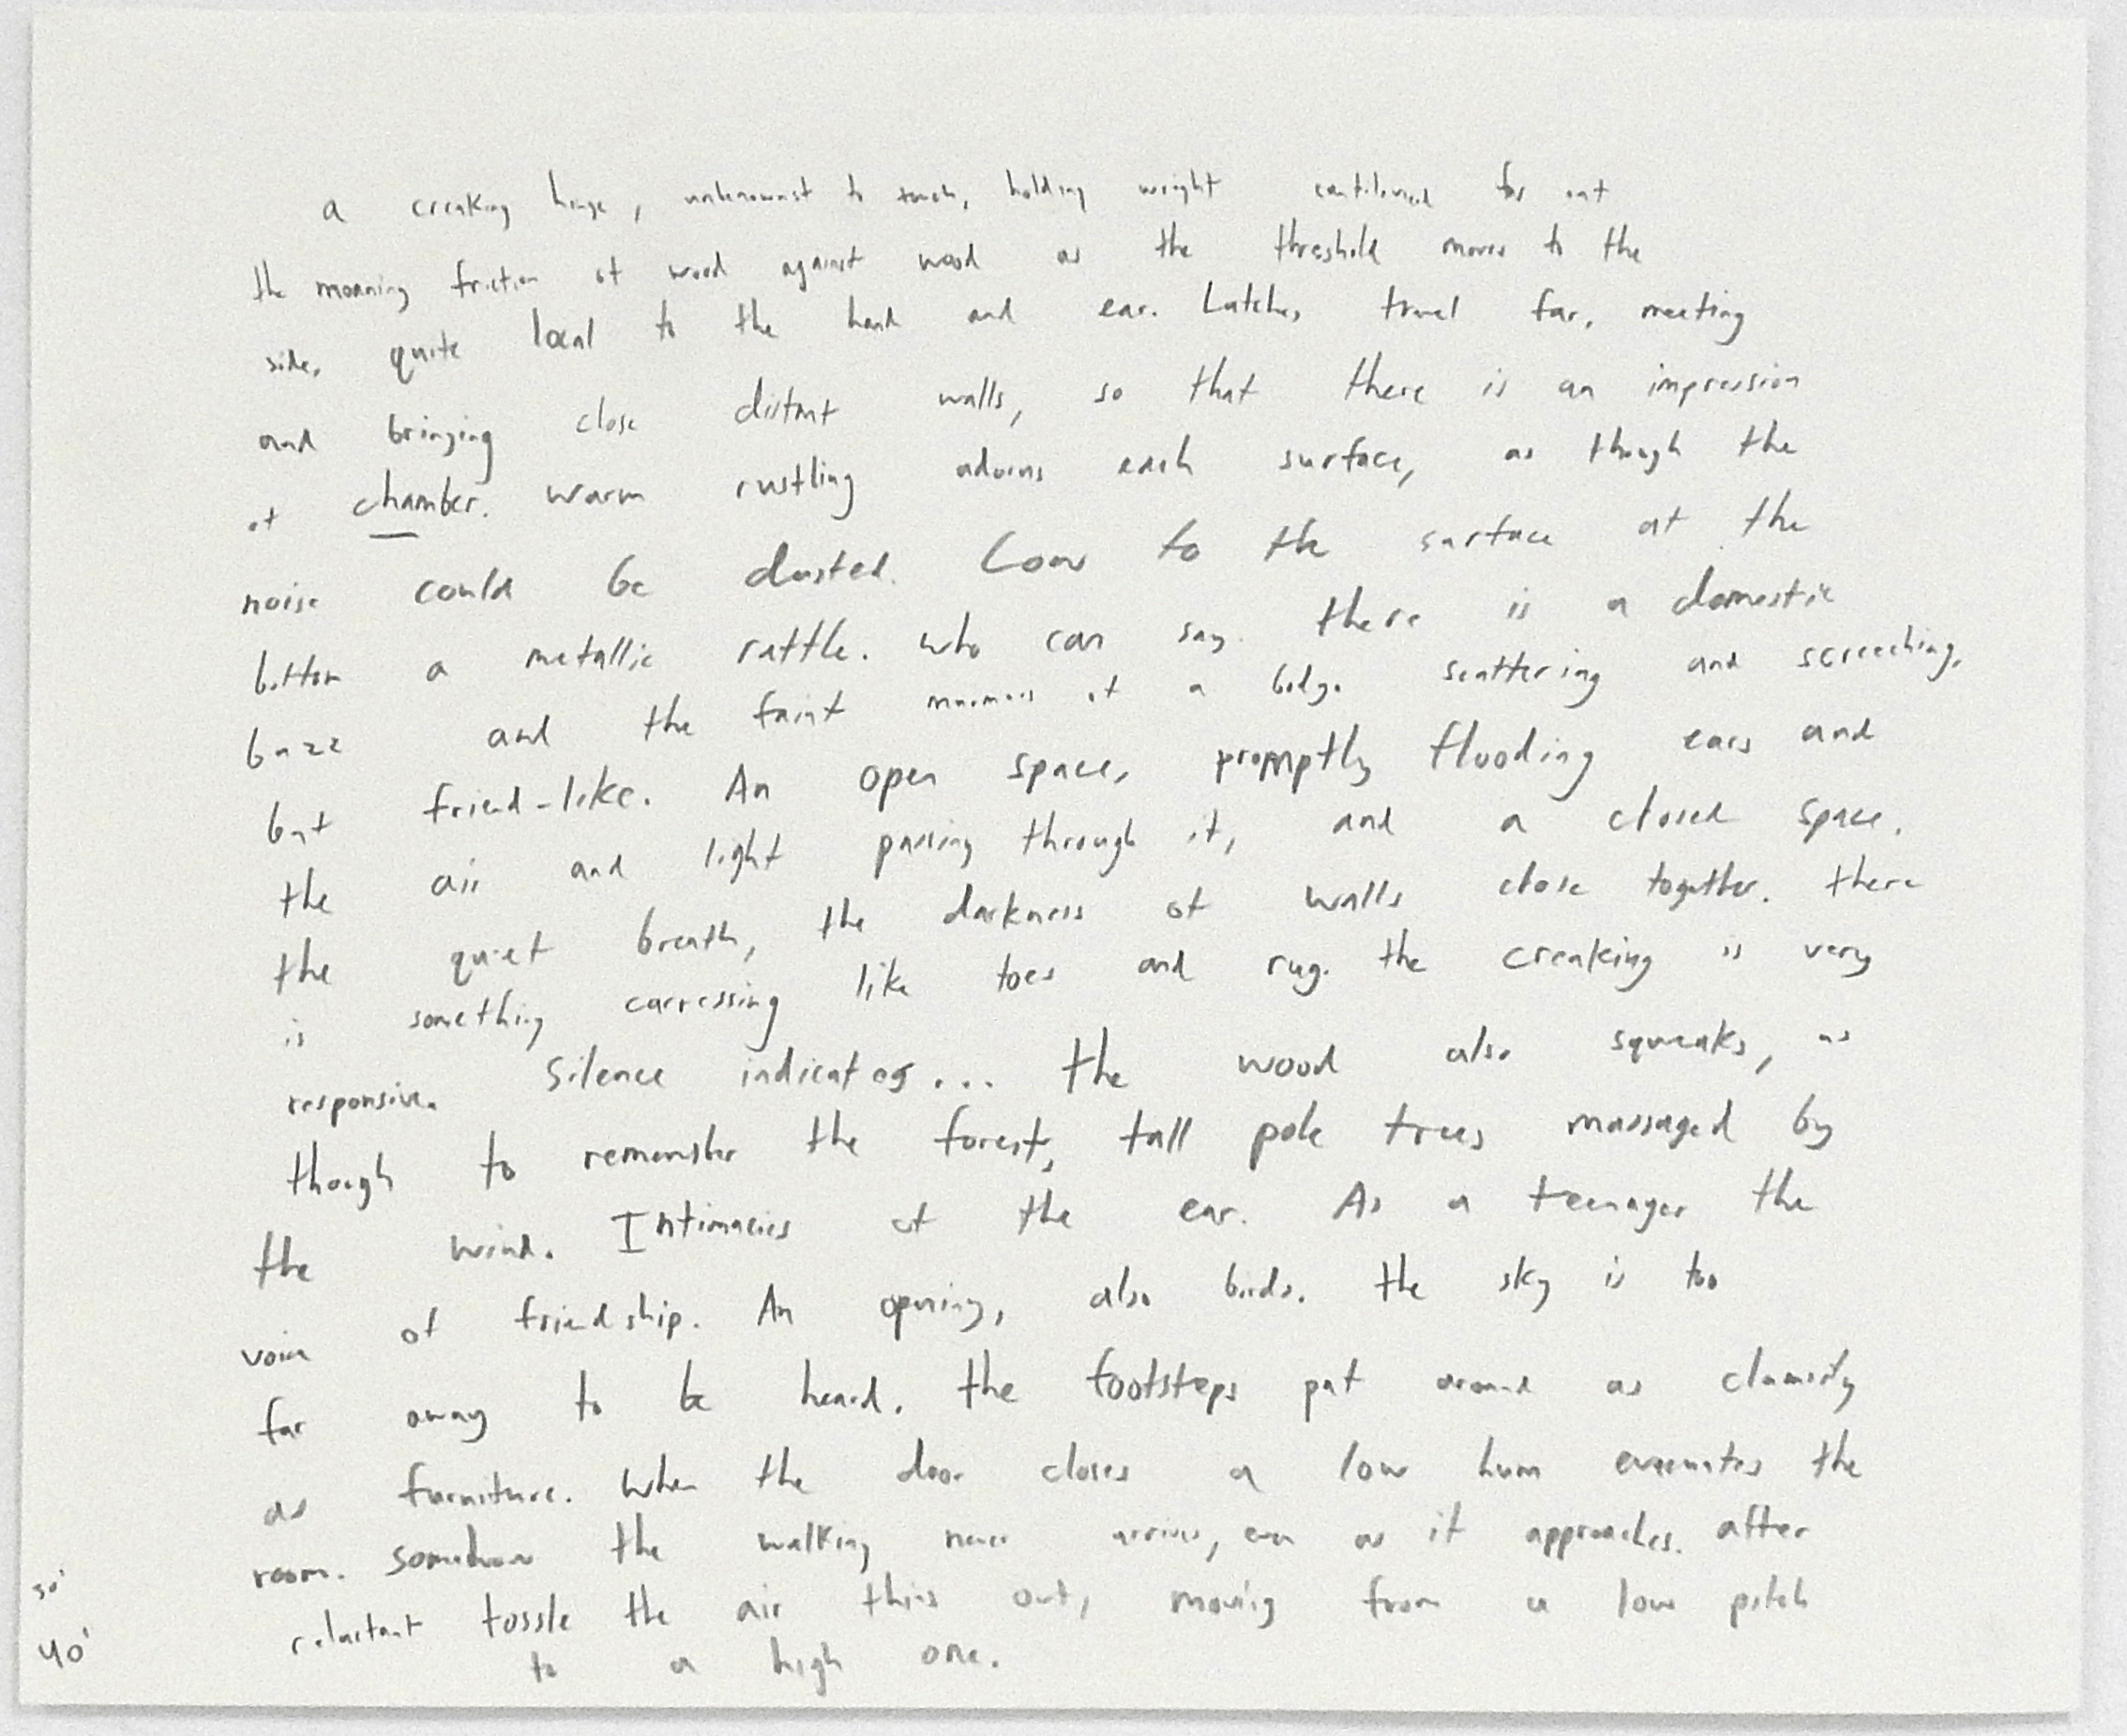 a creaking hinge, unbenownst to touch, holding weight cantilevered far out
the moaning friction of wood against wood as the threshold moves to the
side, quite local to the hand and ear. Latches travel far, meeting
and bringing close distant walls, so that there is an impression
of chamber. warm rustling adorns each surface, as though the
noise could be dusted. Low to the surface at the
bottom a metallic rattle. who can say. there is a domestic
buzz and the faint murmurs of a body. scattering and screeching,
but friend-like. An open space, promptly flooding ears and
the air and light passing through it, and a closed space.
the quiet breath, the darkness of walls close together. there
is something carressing like toes and rug. the creaking is very
responsive. Silence indicates... the wood also squeaks, as
though to remember the forest, tall pole trees massaged by
the wind. Intimacies of the ear. As a teenager the
voice of friendship. An opening, also birds. the sky is too
far away to be heard. the footsteps pat around as clumsily
as furniture. when the door closes a low hum evacuates the
room. somehow the walking never arrives, even as it approaches. after
reluctant tossle the air thins out, moving from a low pitch
to a high one.
30'
40'